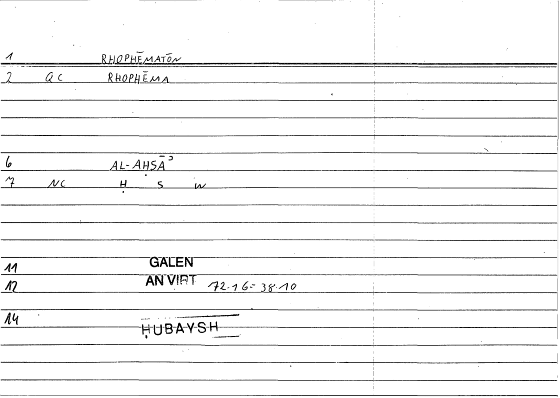 1 RHOPHĒMATŌN
2 GC RHOPHĒMA
6 AL-AḤSĀʾ
7 NC Ḥ S W
11 GALEN
12 AN VIRT 72.16 = 38.10
14 ḤUBAYSH